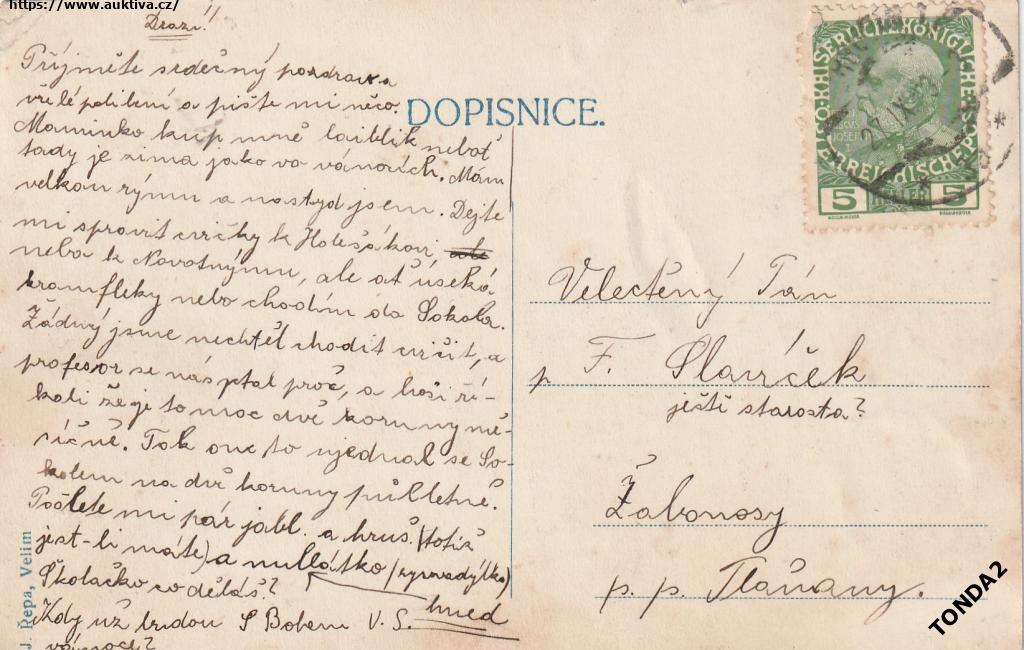 https://www.auktiva.cz/
Drazí!
Příjměte srdečný pozdrav a
vřelé políbení a pište mi něco.
Maminko kup mně laiblík neboť
tady je zima jako vo vánocích. Mám
velkou rýmu a nastyd jsem. Dejte
mi spravit cvičky k Holešákovi,
nebo k Novotnýmu, ale ať úseká
kramfleky nebo chodím do Sokola.
Žádný jsme nechtěl chodit cvičit, a
profesor se nás ptal proč, a hoši ří-
kali že je to moc dvě koruny mě-
síčně. Tak on to ujednal se So-
kolem na dvě koruny půlletně.
Pošlete mi pár jabl. a hruš. (totiž
jest-li máte) a
Školačko co děláš?
hned
Kdy už budou S Bohem V. S.
vánoce?
DOPISNICE.
KAISERLICHE KÖNIGLICHE
ÖSTERREICHISCHE POST
27 IX
5 HELLER 5
Velectěný Pán
p F. Slavíček
ještě starosta?
Žabonosy
p. p. Plaňany.
J. Řepa, Velim
TONDA2